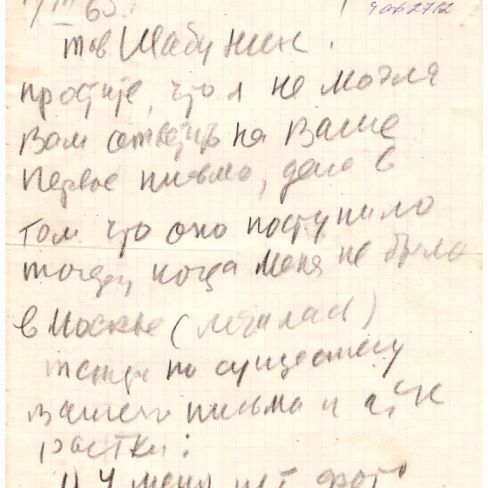 тов Шабунин.
простите, что я не могла
Вам ответить на Ваше
Первое письмо, дело в
том что оно поступило
тогда, когда меня не было
в Москве (лечилась)
теперь по существу
вашего письма и
У меня нет фото